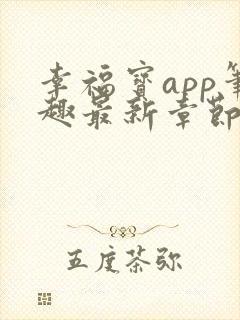 幸福寳app筆
趣最新章節
五度茶弥